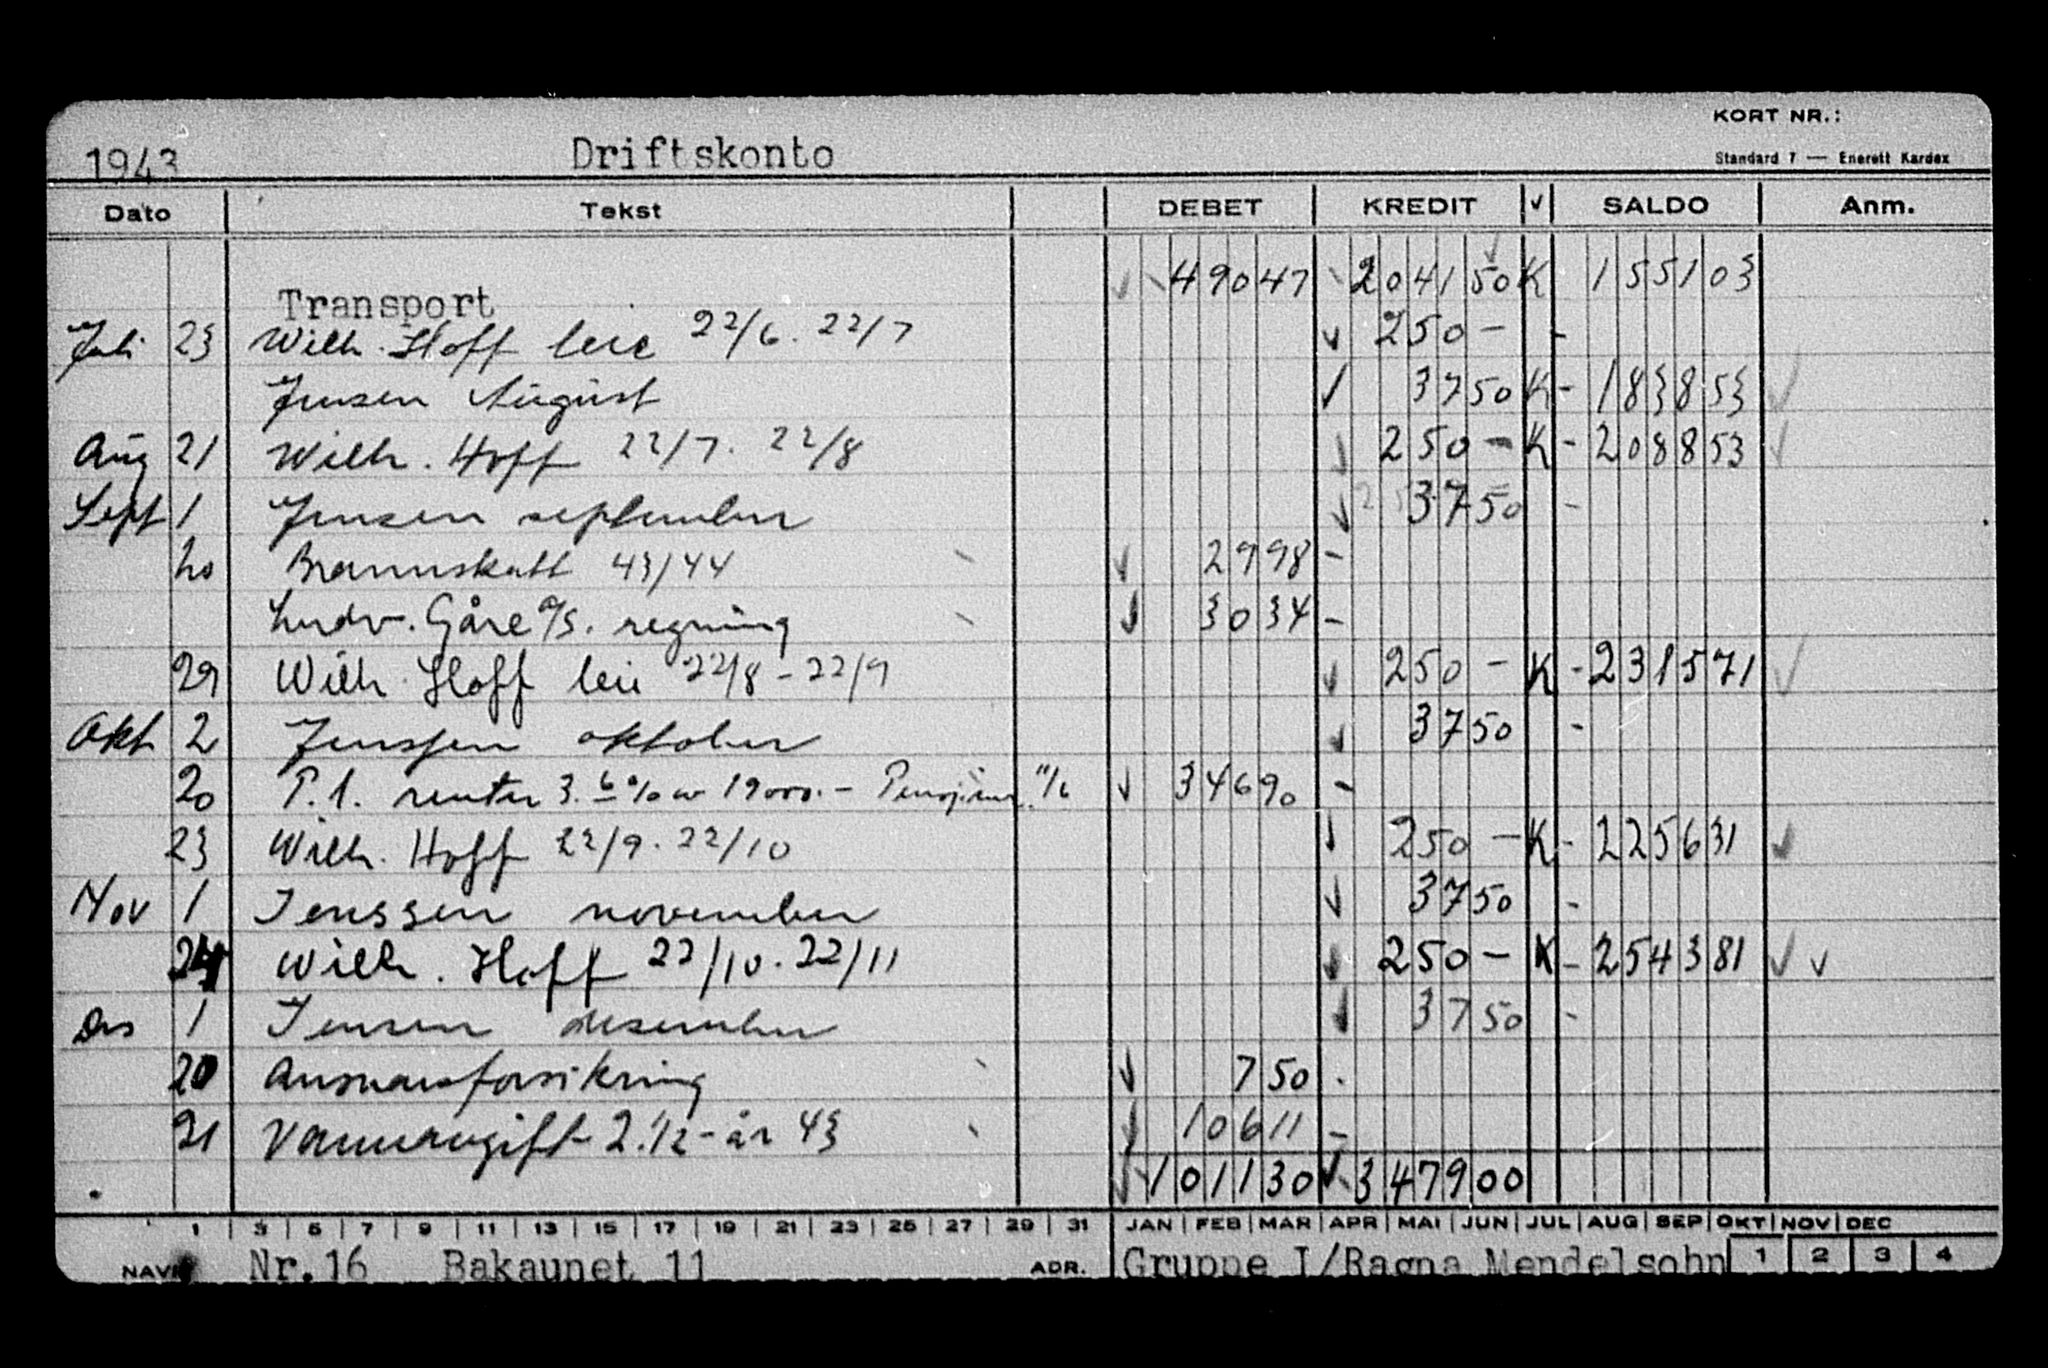 KORT NR.:
1943 Driftskonto
Standard 7 — Enerett Kardex
Dato Tekst DEBET KREDIT v SALDO Anm.
Transport 490 47 2041 50 K 1551 03
Juli 23 Wilh. Hoff leie 22/6. 22/7 250 - -
Jensen August 37 50 K - 1838 53
Aug 21 Wilh. Hoff 22/7. 22/8 250 - K - 2088 53
Sept 1 Jensen september 37 50 -
20 Brannskatt 43/44 29 98 -
Ludv. Gåre a/s. regning 30 34 -
29 Wilh. Hoff leie 22/8 - 22/9 250 - K - 2315 71
Okt 2 Jenssen oktober 37 50 -
20 P.l. renter 3.6% av 19000.- 11/6 346 90 -
23 Wilh. Hoff 22/9. 22/10 250 - K - 2256 31
Nov 1 Jenssen november 37 50 -
24 Wilh. Hoff 22/10. 22/11 250 - K - 2543 81
Des 1 Jensen desember 37 50 -
20 Ansvarsforsikring 7 50 .
21 Vannavgift 2. 1/2 - år 43 106 11 -
1011 30 3479 00
1 3 5 7 9 11 13 15 17 19 21 23 25 27 29 31 JAN FEB MAR APR MAI JUN JUL AUG SEP OKT NOV DEC
NAVN Nr.16 Bakaunet 11 ADR. Gruppe I/Ragna Mendelsohn 1 2 3 4